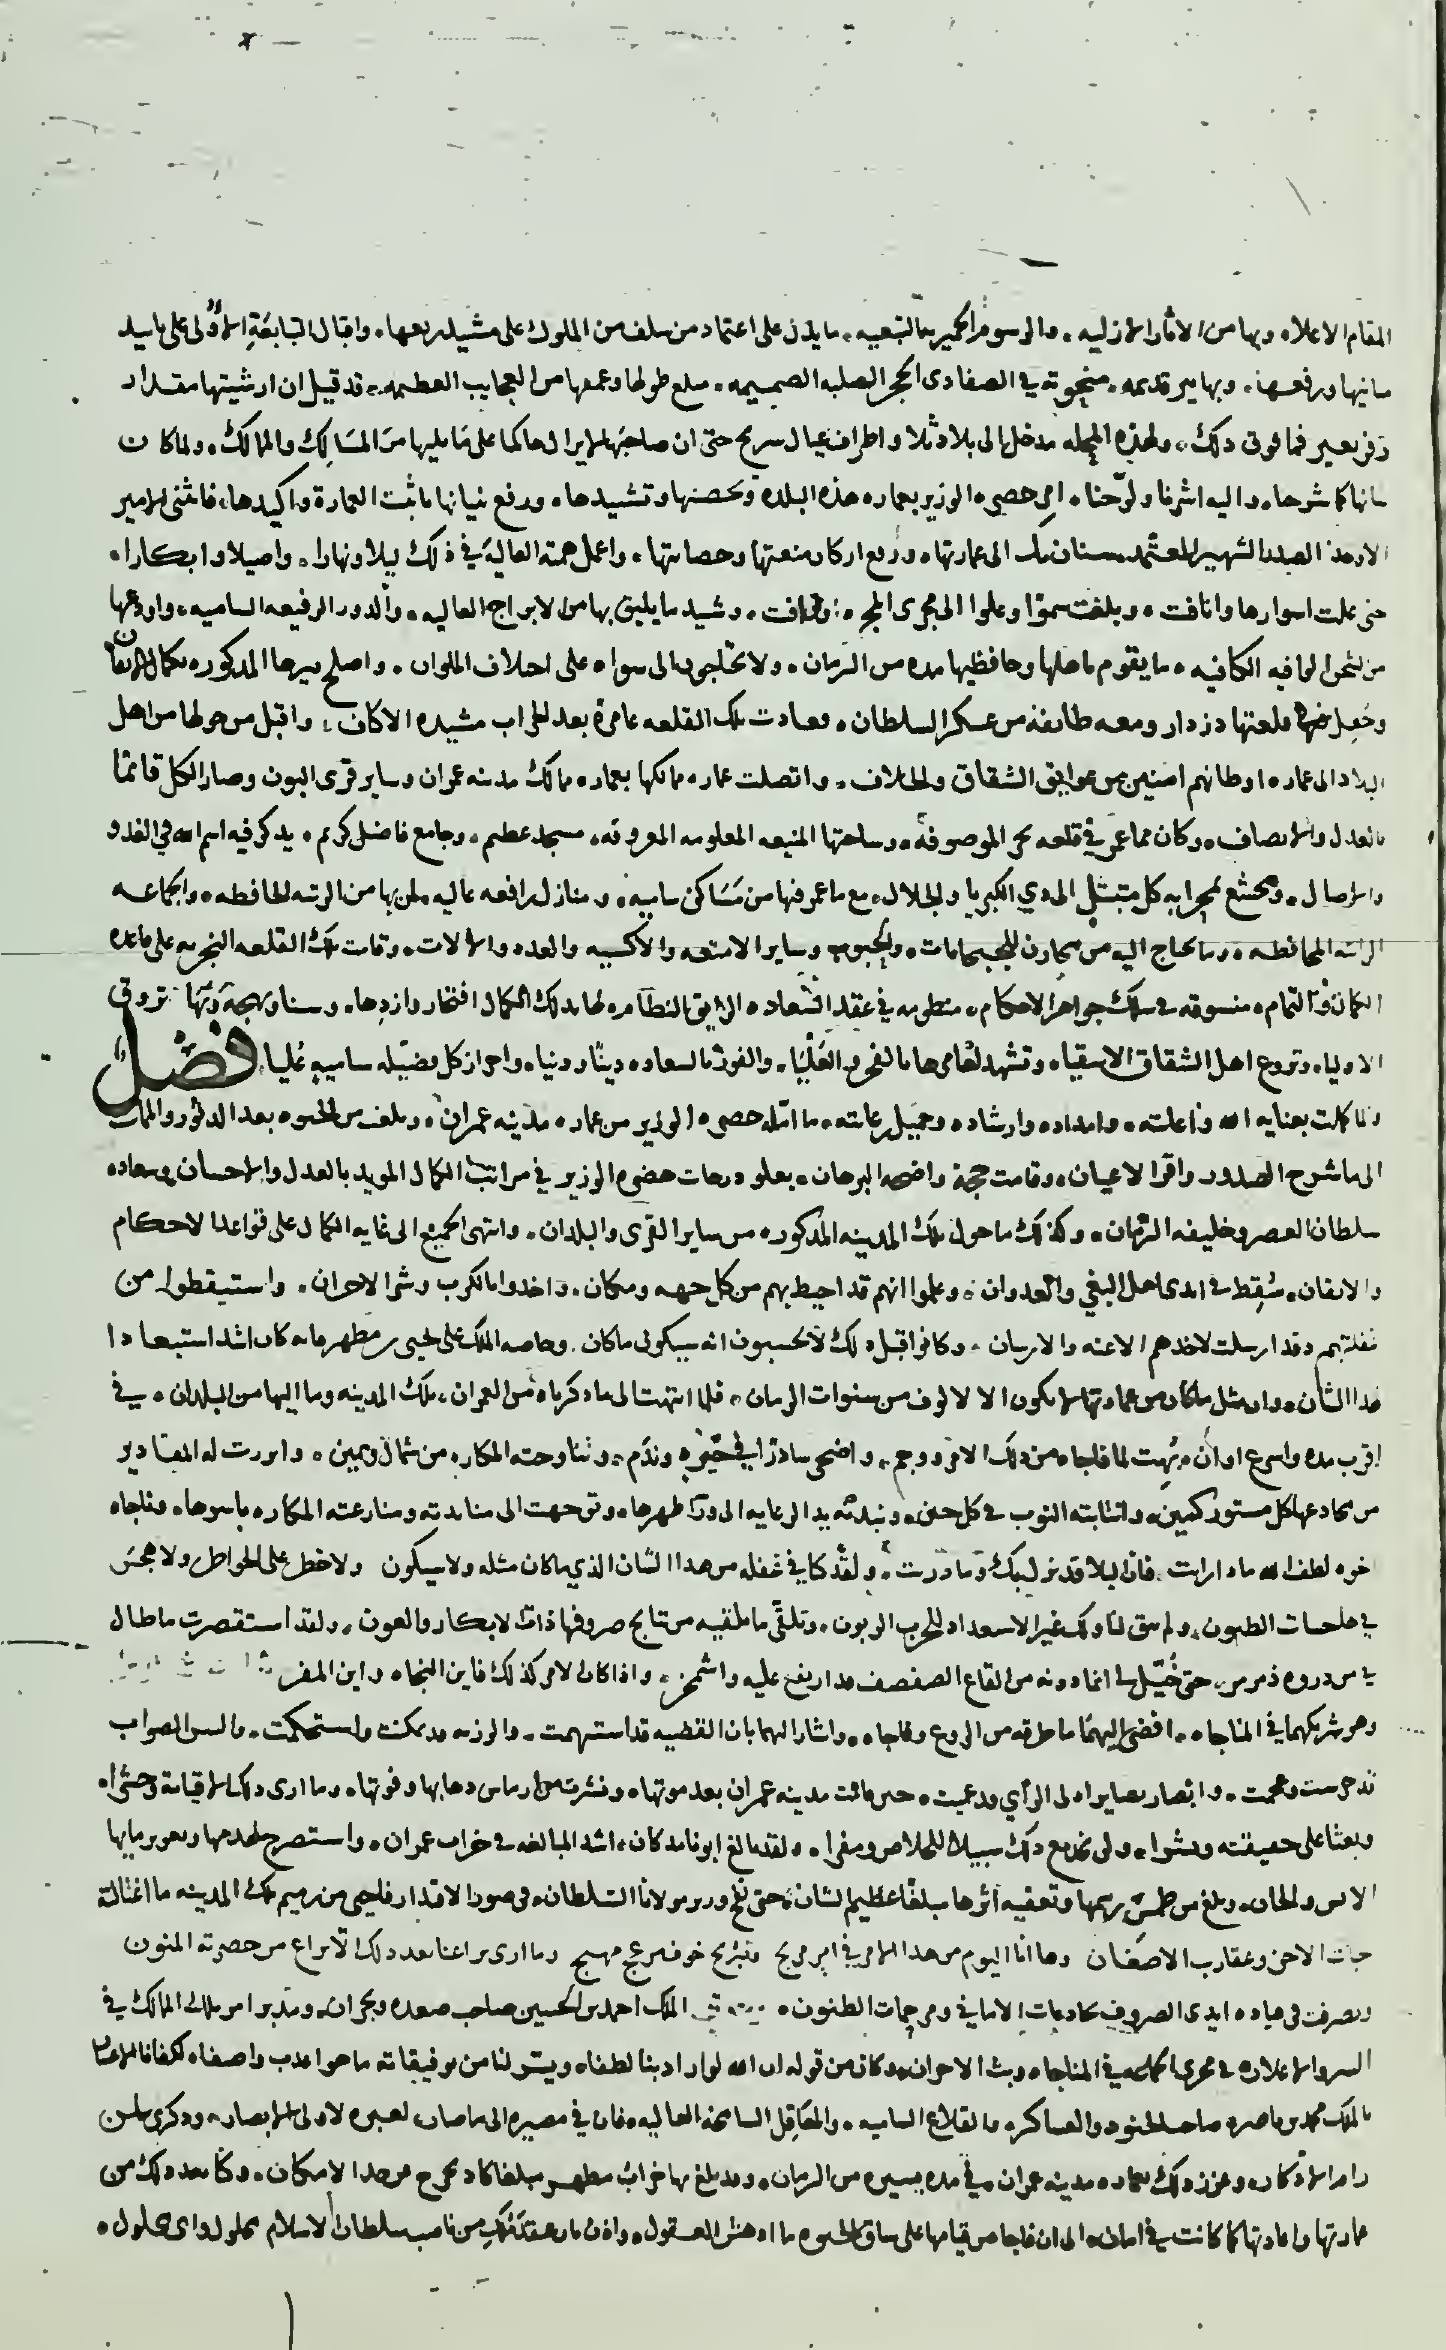 المقام الاعلاه وبها من الاثار الازليه، والرسوم الحميريه التبعيه، ما يدل على اعتماد من سلف من الملوك على مشيد ربعها، واقبال التبابعة الاولى على تاييد
مبانيها ورفعها، وبها بير قديمه، منحوته في الصفا ذي الحجر الصلبه الصميمه، مبلغ طولها وعمقها من العجايب العظيمه، قد قيل ان ارشيتها مقدار
وقر بعير فما فوق ذلك، ولهذه المجله مدخل الى بلاد ثلا واطراف عيال سريح حتى ان صاحبها لا يزال حاكما على ما يليها من المسالك والممالك، ولما كان
شانها كما شرحنا، واليه اشرنا ولوحنا، امر حضره الوزير بعماره هذه البلده وتحصينها وتشييدها، ورفع بنيانها باثبت العمارة واكيدها، فانثنى الامير
الاوحد الصدر الشهير المعتمد سنان بك الى عمارتها، ورفع اركان منعتها وحصانتها، واعمل همته العالية في ذلك ليلا ونهارا، واصيلا وابكارا،
حتى علت اسوارها وانافت، وبلغت سموا وعلوا الى مجرى المجره وطافت، وشيد ما يليق بها من الابراج العاليه، والدور الرفيعه الساميه، واودعها
من الشحن الوافيه الكافيه، ما يقوم باهلها وحافظيها مده من الزمان، ولا يحتاجون الى سواه على اختلاف الملوان، واصلح بيرها المذكوره بكمال الاتقان
وجعل في قلعتها دزدار ومعه طايفة من عسكر السلطان، فعادت تلك القلعه عامرة بعد الخراب مشيده الاكناف، واقبل من حولها من اهل
البلاد الى عماره اوطانهم امنين من عوايق الشقاق والخلاف، واتصلت عماره ممالكها بعماره ممالك مدينه عمران وساير قرى البون وصار الكل قائما
بالعدل والانصاف، وكان مما عمر في قلعه الموصوفة، وساحتها المنيعه المعلومه المعروفه، مسجد عظيم، وجامع فاضل كريم، يذكر فيه اسم الله في الغدو
والاصال، ويخشع لمحرابه كل متبتل الى ذي الكبريا والجلال، مع ما عمر فيها من مساكن ساميه، ومنازل رافعه عاليه، لمن بها من الرتبه الحافظه، والجماعه
المحافظه، وما يحتاج اليه من مخازن، والحبوب وساير الامتعه والاكسيه والعدد والالات، وقامت تلك القلعه على قاعده
الكمال والتمام، منسوقه في سلك جواهر الاحكام، منظومه في عقد السعاده الرايق النظام، لها بذلك الكمال افتخار وازدها، وسنا وبهجة وبها تروق
الاوليا، وتروع اهل الشقاق الاشقيا، وتشهد لعامرها بالفخر والعليا، والفوز بالسعاده دينا ودنيا، واحراز كل فضيله ساميه عليا، فصل
ولما كملت بعنايه الله واعانته، وامداده وارشاده وجميل رعايته، ما امله حضره الوزير من عماره مدينه عمران، وبلغت من الحيوه بعد الدثور والممات
الى ما شرح الصدور واقر الاعيان، وقامت حجة واضحه البرهان، بعلو درجات حضره الوزير في مراتب الكمال المويد بالعدل والاحسان وسعاده
سلطان العصر وخليفه الزمان، وكذلك ما حول تلك المدينه المذكوره من ساير القرى والبلدان، وانتهى الجميع الى غايه الكمال على قواعد الاحكام
والاتقان، سُقِط في ايدي اهل البغي والعدوان، وعلموا انهم قد احيط بهم من كل جهه ومكان، واخذوا بالكرب وشر الاحزان، واستيقظوا من
غفلتهم وقد ارسلت لاخذهم الاعنه والارسان، وكانوا قبل ذلك لا يحسبون انه سيكون ما كان، وخاصه الملك على يحيى بن مطهر فانه كان اشد استبعادا
لهذا الشان، وان مثل ما كان من عمارتها لا يكون الا لالوف من سنوات الزمان، فلما انتهت الى ما ذكرناه من العمران، تلك المدينه وما اليها من البلدان، في
اقرب مده واسرع اوان، بُهت لما فاجاه من ذلك الامر ووجم، واضحى سادرا في حيره وندم، وتناوحته المكاره من شمال ويمين، وابرزت له المقادير
من مخادعها كل مستور كمين، وانتابته النوب في كل حين، ونبذته يد الرعايه الى ورا ظهرها، وتوجهت الى منابذته ومنازعته المكاره باسرها، وناجاه
اخوه لطف الله ماذا رايت، فان البلا قد نزل بك وما دريت، ولقد كنا في غفله من هذا الشان الذي ما كان مثله ولا سيكون ولا خطر على الخواطر ولا هجس
في خلجات الظنون، ولم يبق لنا ولك غير الاستعداد للحرب الزبون، وتلقي ما تلقيه من نتايج صروفها ذات الابكار والعون، ولقد استقصرت ما طال
لي من ذروه ذمرمر، حتى خُيّل لي انما دونه من القاع الصفصف قد ارتفع عليه واشمخر، واذا كان الامر كذلك فاين النجاه واين المفر
وهو شريكهما في المناجاه، افضى اليهما ما طرقه من الروع وفاجاه، واشار اليهما بان القضيه قد استبهمت، والوزير قد تمكنت واستحكمت، والسن الصواب
قد خرست وعجمت، وابصار بصاير اولي الراي قد عميت، حين قامت مدينه عمران بعد موتها، ونشرت من ارماس ذهابها وفوتها، وما ارى ذلك الا قيامة وحشرا،
وبعثا على حقيقته ونشرا، ولن نجد مع ذلك سبيلا للخلاص ومفرا، ولقد بالغ ابونا مده كان، اشد المبالغه في خراب عمران، واستصرخ لهدمها
الانس والجان، وبلغ من طمس رسمها وتعفيه اثرها مبلغا عظيم الشان، حتى وزير مولانا السلطان، في صور الاقتدار فاحيى من رميم تلك المدينه ما اغتالته
حيات الاحن وعقارب الاضغان وها انا اليوم من هذا الامر في امر مريج وتبريح خوف مزعج مهيج وما ارى يراعنا بعد ذلك الا يراع من حضرته المنون
وتصرفت في قياده ايدي الصروف بكاذبات الاماني ومرجمات الظنون، الملك احمد بن الحسين صاحب صعده ونجران، ومدبر امر تلك الممالك في
السر والاعلان، في مجرى في المناجاه وبث الاحزان، فكان من قوله ان الله لو اراد بنا لطفا، ويسر لنا من توفيقاته ما هو اعذب واصفا، لكفانا الاعتبار
بالملك محمد بن ناصر، صاحب الجنود والعساكر، والقلاع الساميه، والمعاقل الشامخة العاليه، فان في مصيره الى ما صار، لعبره لاولي الابصار، وذكرى لمن
رام الاذكار، وعزز ذلك بعماره مدينه عمران، في مده يسيره من الزمان، وقد بلغ بها خراب مطهر مبلغا كاد يخرج عن حد الامكان، وكنا بعد ذلك من
عمارتها واعادتها كما كانت في امان، الى ان فاجا من قيامها على ساق الحيوه ما ادهش العقول، واذن بان عقدتكم من نايب سلطان الاسلام محلول واي محلول،